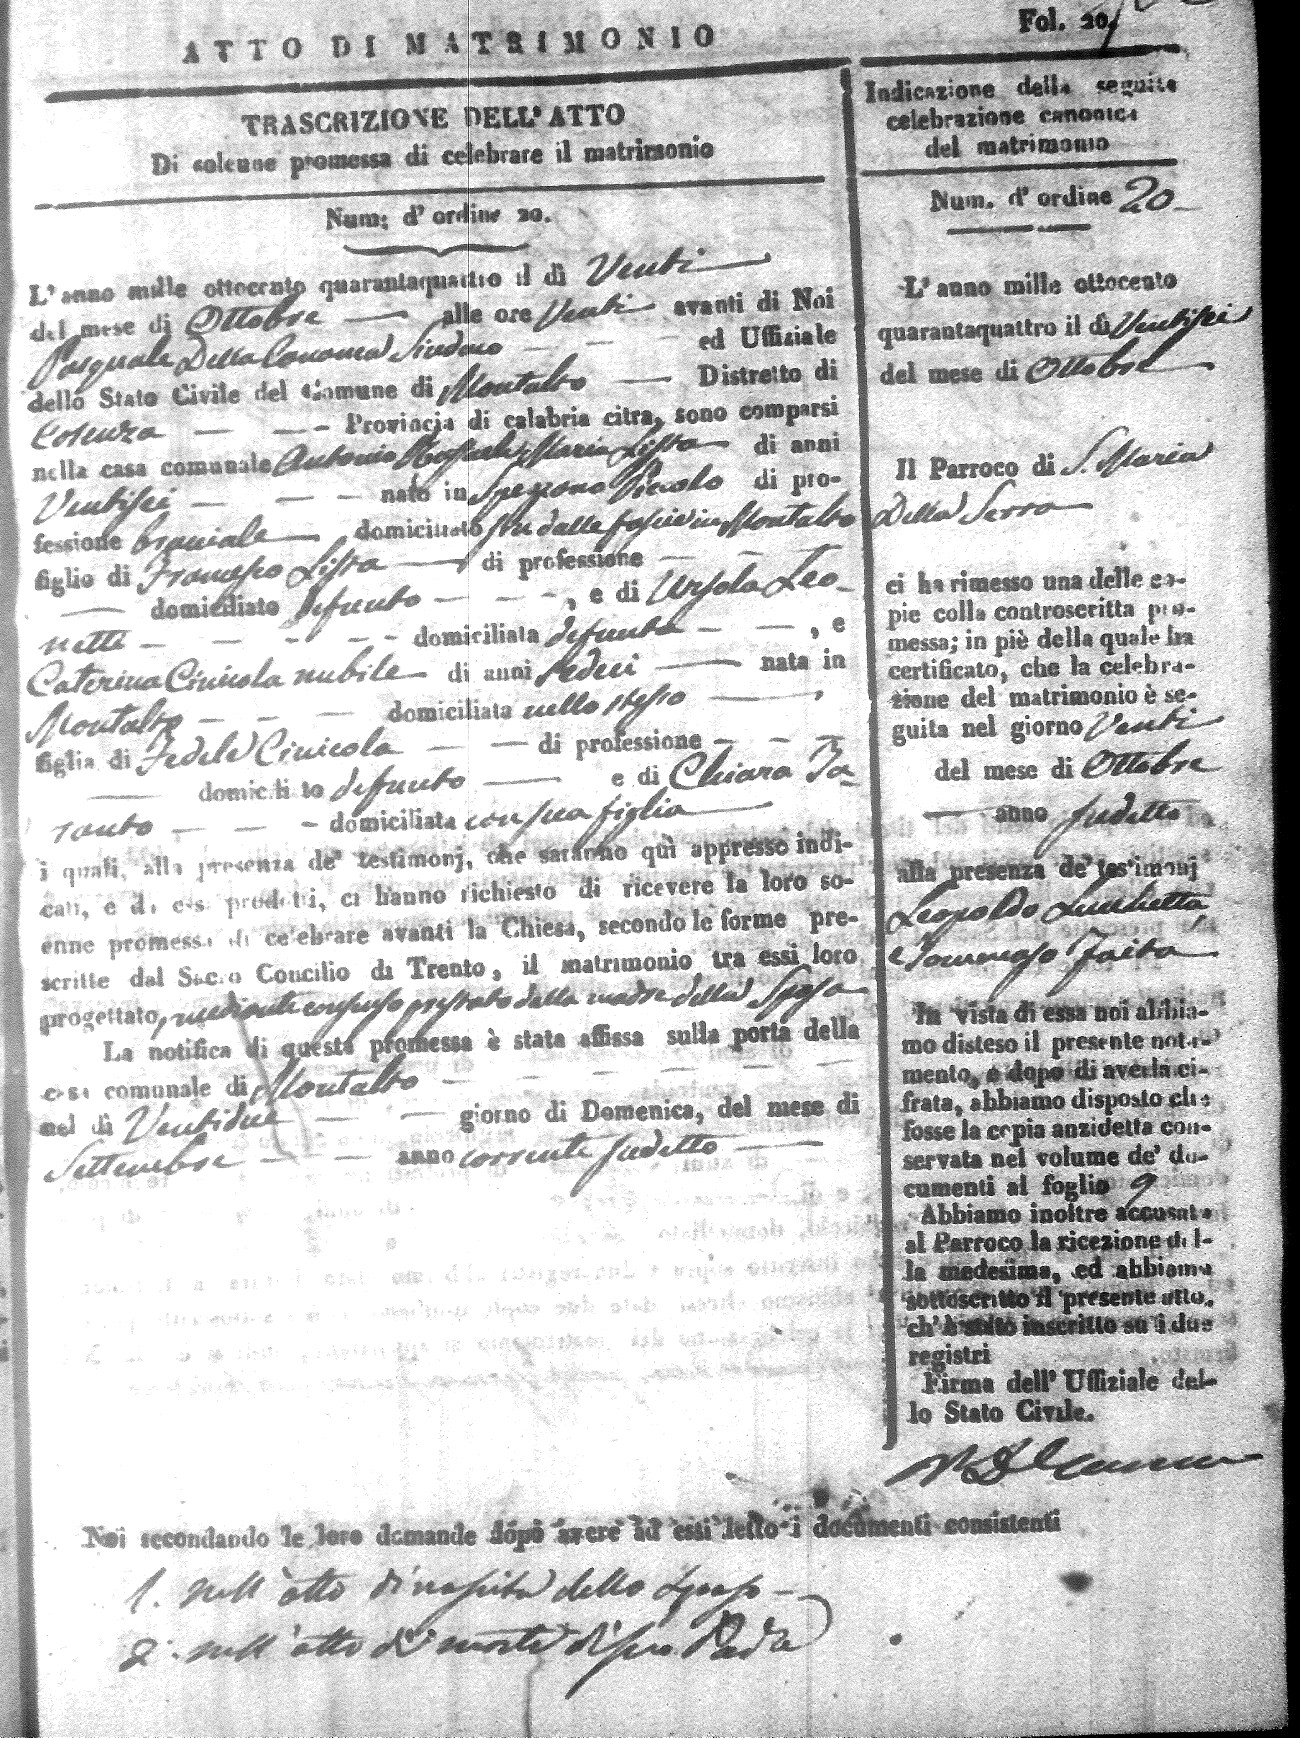 ATTO DI MATRIMONIO
Fol. 20
TRASCRIZIONE DELL' ATTO
Di solenne promessa di celebrare il matrimonio
Num: d' ordine 20.
L' anno mille ottocento quarantaquattro il dì Venti
del mese di Ottobre — alle ore Venti avanti di Noi
Pasquale Della Sindaco — — — ed Uffiziale
dello Stato Civile del Comune di Montalto — Distretto di
Cosenza — — — Provincia di calabria citra, sono comparsi
nella casa comunale Antonio Maria Lissa di anni
Ventisei — — — nato in Spezzano Piccolo di pro-
fessione braciale domiciliato fin dalle fascie in Montalto
figlio di Francesco Lissa — di professione — — —
— domiciliato defunto — — — , e di Ursola Leo-
netti — — — — domiciliata defunta — — , e
Caterina Cinicola nubile di anni sedeci — nata in
Montalto — — — domiciliata nello stesso —
figlia di Fedele Cinicola — — di professione — — —
— domiciliato defunto — e di Chiara Ta-
ranto — — — domiciliata con sua figlia —
i quali, alla presenza de' testimonj, che saranno quì appresso indi-
cati, e da essi prodotti, ci hanno richiesto di ricevere la loro so-
enne promessa di celebrare avanti la Chiesa, secondo le forme pre-
scritte dal Sacro Concilio di Trento, il matrimonio tra essi loro
progettato, mediante consenso prestato dalla madre della Sposa
La notifica di questa promessa è stata affissa sulla porta della
casa comunale di Montalto — — — — — —
nel dì Ventidue — — giorno di Domenica, del mese di
Settembre — — — anno corrente sudetto —
Indicazione della seguita
celebrazione canonica
del matrimonio
Num. d' ordine 20
L' anno mille ottocento
quarantaquattro il dì Ventisei
del mese di Ottobre
Il Parroco di S. Maria
Della Serra
ci ha rimesso una delle co-
pie colla controscritta pro-
messa; in piè della quale ha
certificato, che la celebra-
zione del matrimonio è se-
guita nel giorno Venti
del mese di Ottobre
— anno sudetto
alla presenza de' testimonj
Leopoldo Lucchetta
e Tommaso Faita
In vista di essa noi abbia-
mo disteso il presente nota-
mento, e dopo di averla ci-
frata, abbiamo disposto che
fosse la copia anzidetta con-
servata nel volume de' do-
cumenti al foglio 9
Abbiamo inoltre accusata
al Parroco la ricezione del-
la medesima, ed abbiamo
sottoscritto il presente atto,
ch' è stato inscritto su i due
registri
Firma dell' Uffiziale del-
lo Stato Civile.
Noi secondando le loro domande dopo avere ad essi letto i documenti consistenti
1. nell' atto di nascita dello sposo —
2. nell' atto di morte di suo Padre